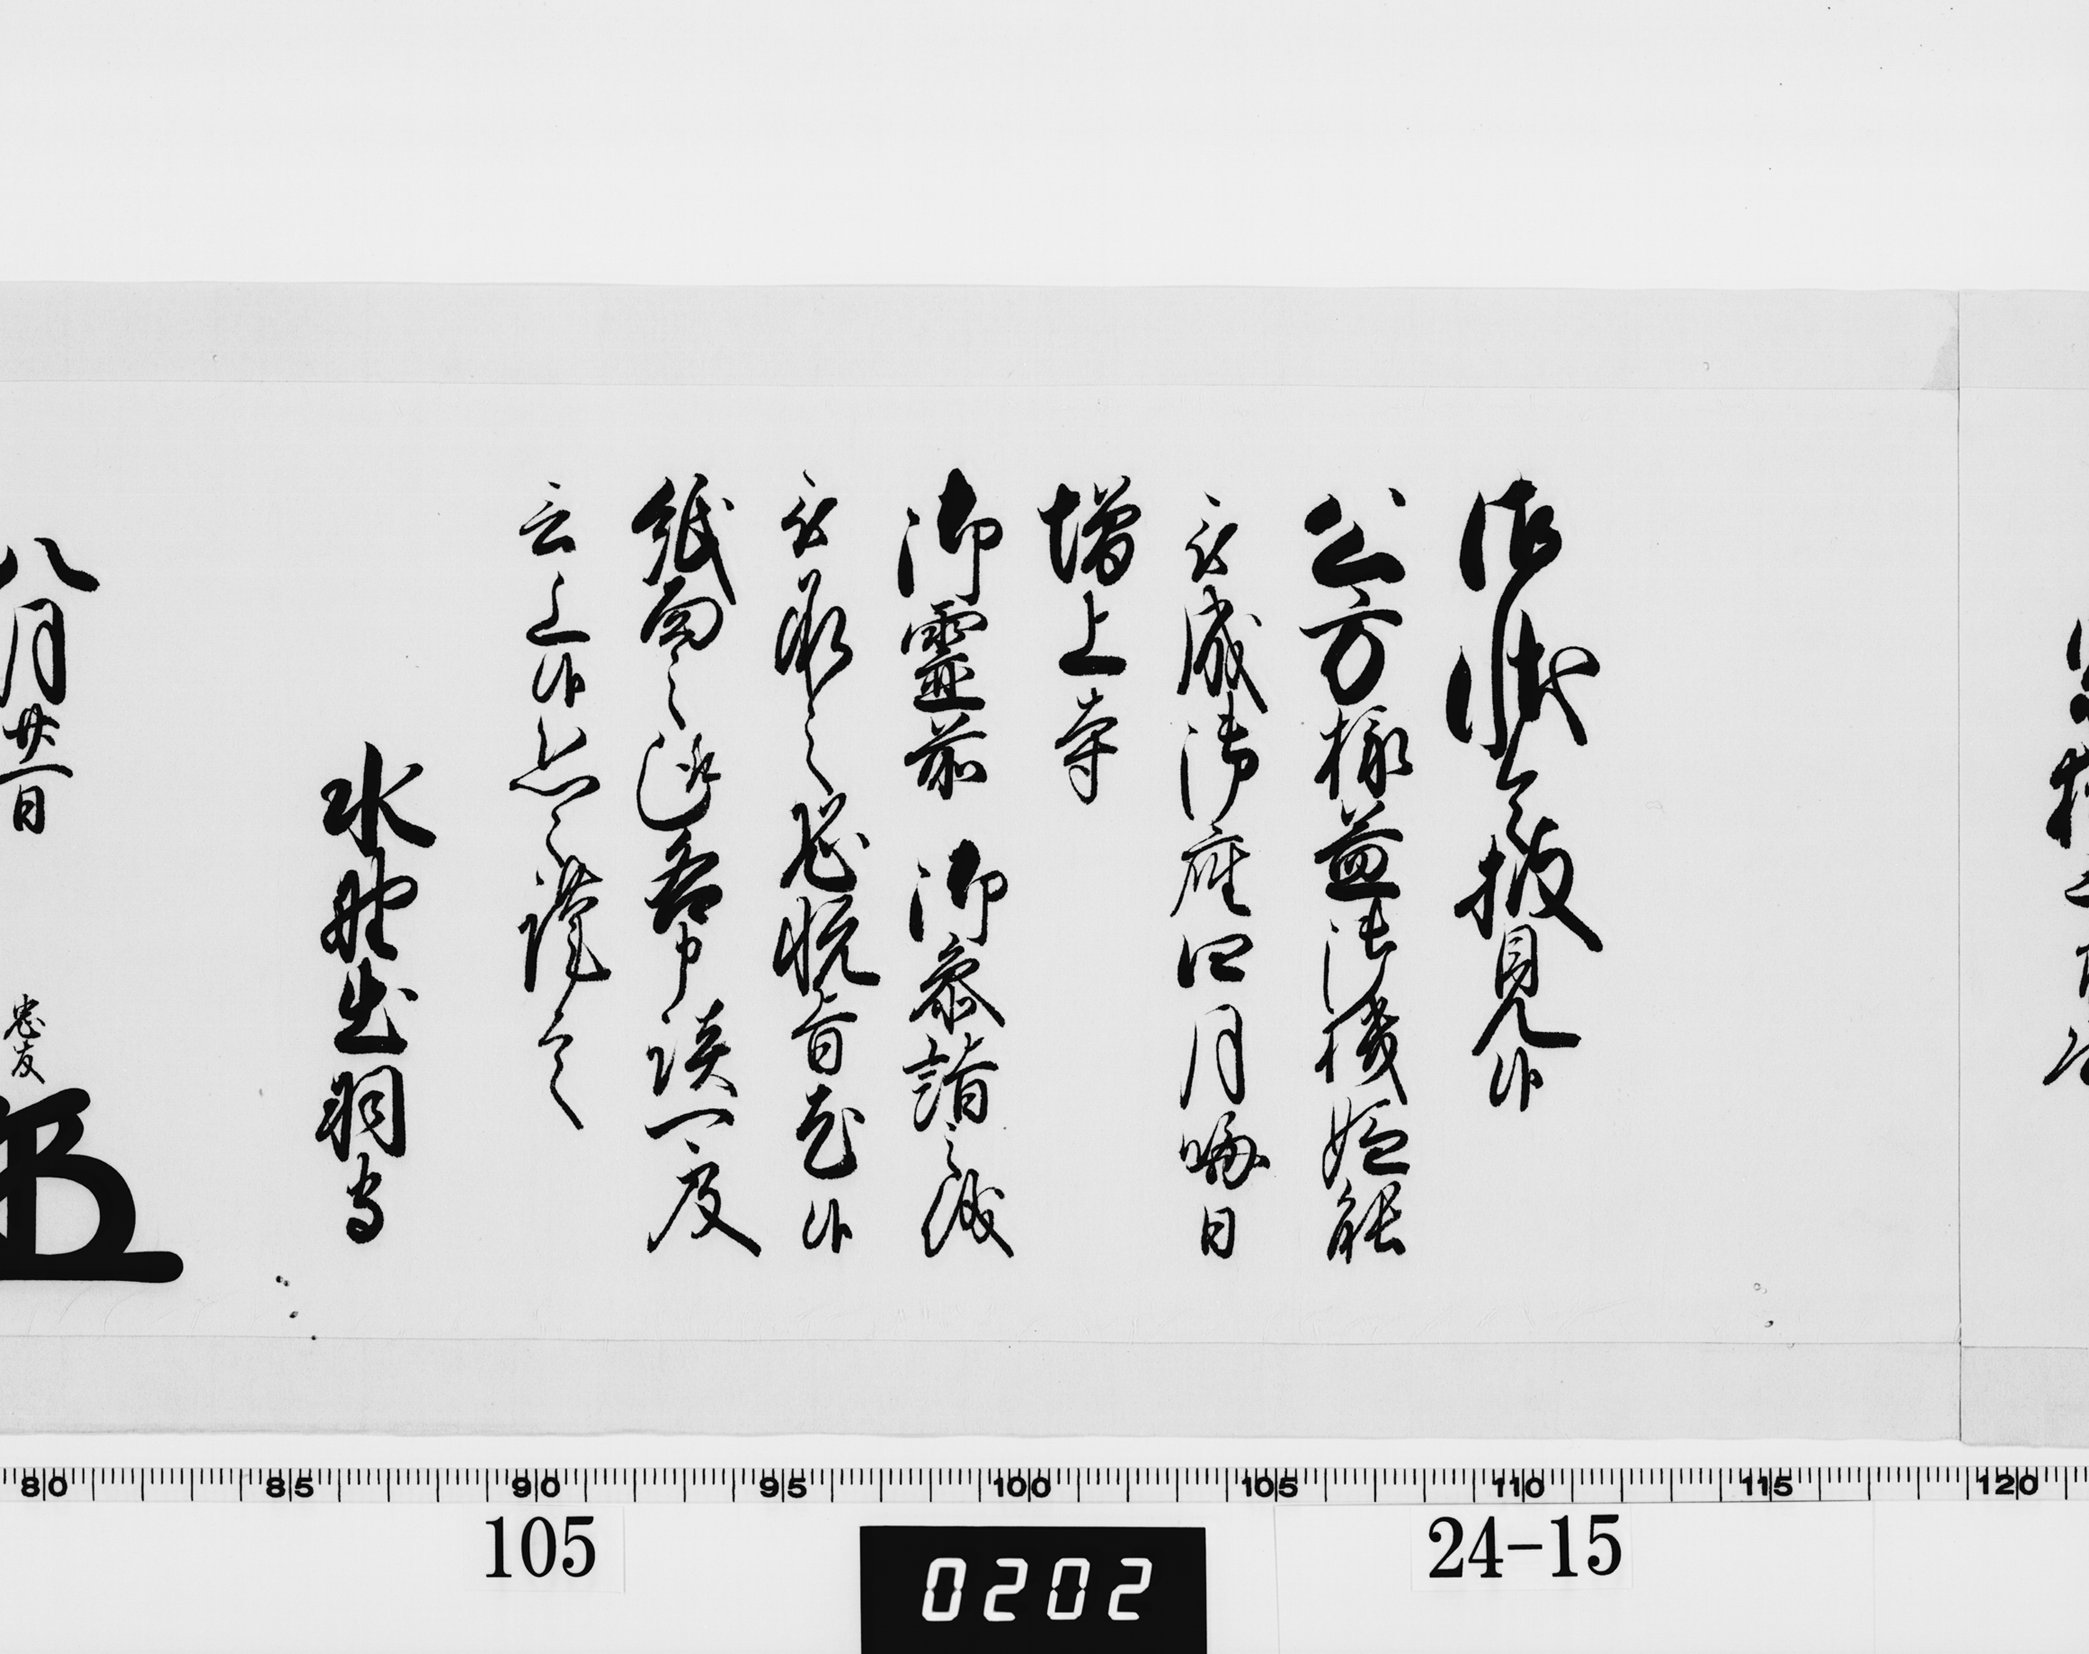 御状令披見候
公方様益御機嫌能
被成御座四月晦日
増上寺
御霊前 御参詣之儀
被承之恐悦旨尤候
紙面之趣各申談可及
言上候恐々謹言
水野出羽守
八月廿一日 忠友
80 85 90 95 100 105 110 115 120
105 0202 24-15